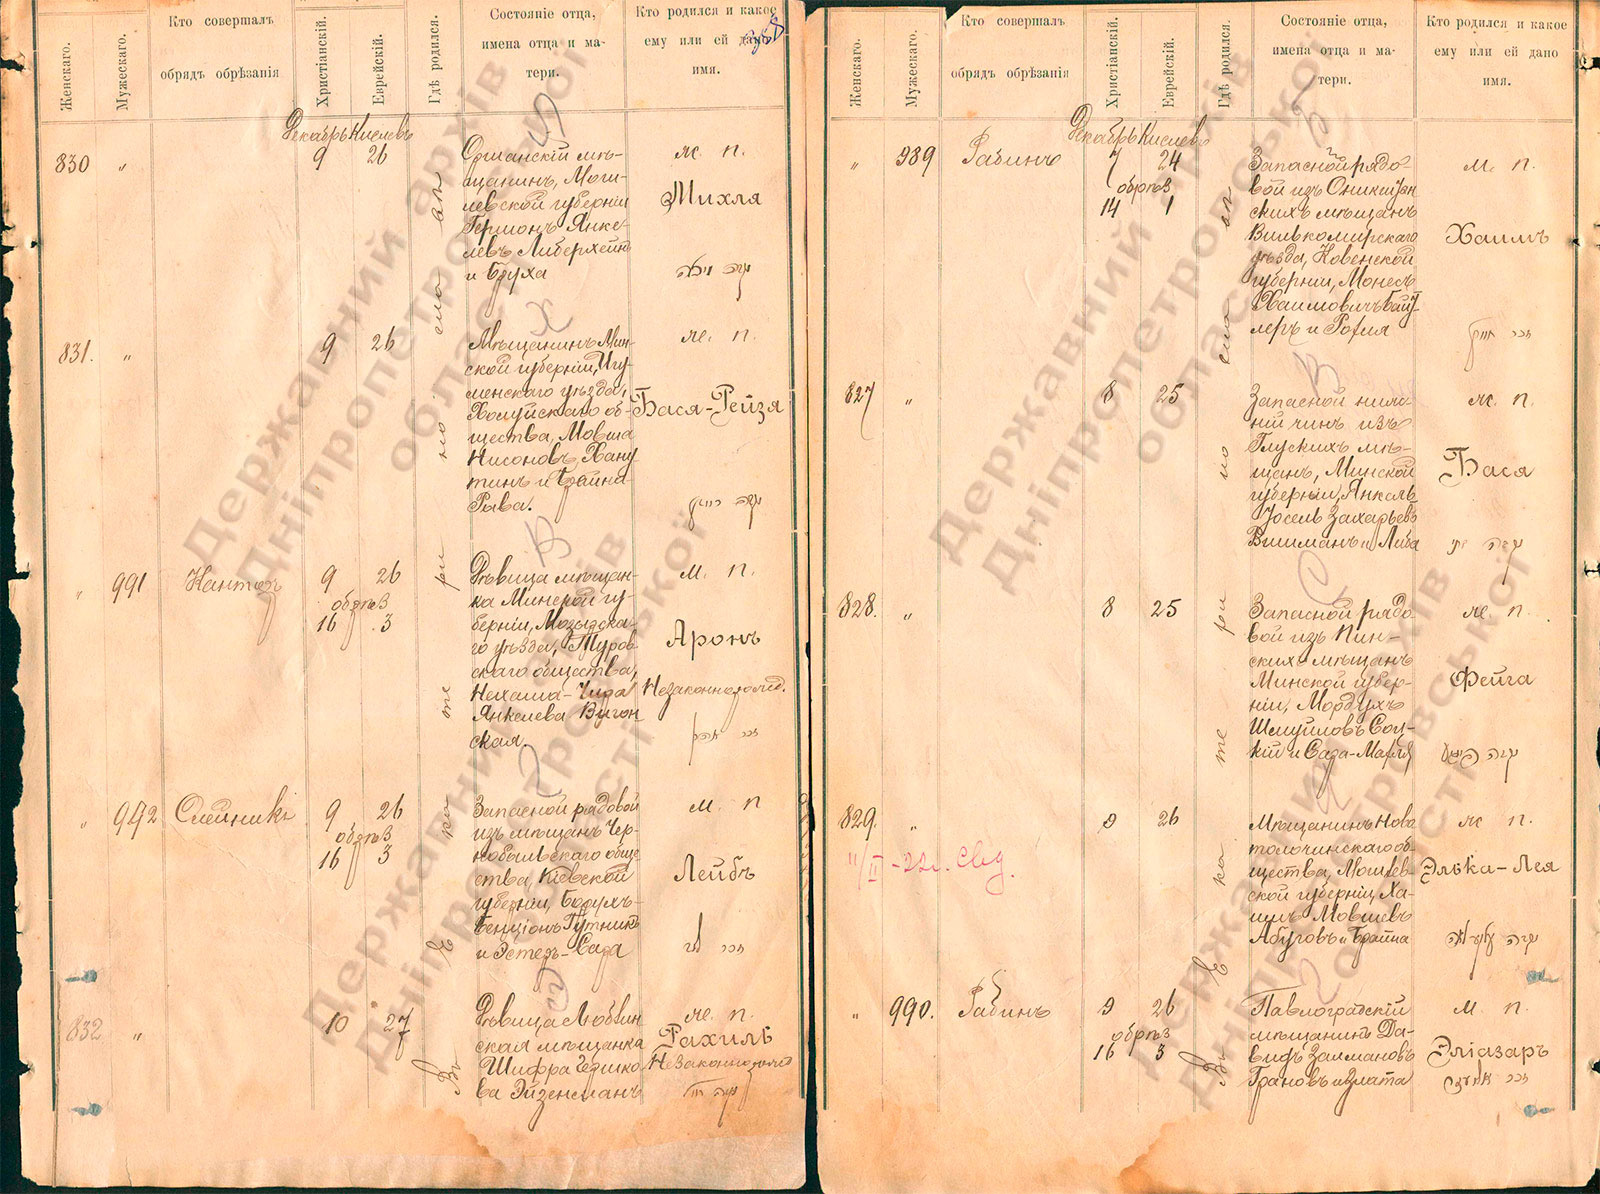 Женскаго.
Мужескаго.
Кто совершалъ
обрядъ обрѣзанія
Христіанскій.
Еврейскій.
Гдѣ родился.
Состояніе отца,
имена отца и ма-
тери.
Кто родился и какое
ему или ей дано
имя.
Декабрь Кислевъ
830 " 9 26
Оршанскій мѣ-
щанинъ, Моги-
левской губерніи
Гершонъ Янке-
левъ Либерхейнъ
и Бруха
ж. п.
Михля
831. " 9 26
Мѣщанинъ Мин-
ской губерніи, Игу-
менскаго уѣзда,
Холуйскаго об-
щества, Мовша
Нисоновъ Хану-
тинъ и Брайна
Рива.
ж. п.
Бася-Рейзя
" 991 Канторъ 9 26
обрѣз
16 3
Дѣвица мѣщан-
ка Минской гу-
берніи, Мозырска-
го уѣзда, Туров-
скаго общества,
Нехама-Чира
Янкелева Вигон-
ская.
м. п.
Аронъ
Незаконнорожд.
" 992 Олейникъ 9 26
обрѣз
16 3
Запасной рядовой
изъ мѣщанъ Чер-
нобыльскаго обще-
ства, Кіевской
губерніи, Борухъ-
Бенціонъ Гутникъ
и Эстеръ-Сара
м. п
Лейбъ
832 " 10 27
Дѣвица Любвин
ская мѣщанка
Шифра Гершко-
ва Эйзенсманъ
ж. п.
Рахиль
Незаконнорожд
Въ Екатеринославѣ
Женскаго.
Мужескаго.
Кто совершалъ
обрядъ обрѣзанія
Христіанскій.
Еврейскій.
Гдѣ родился.
Состояніе отца,
имена отца и ма-
тери.
Кто родился и какое
ему или ей дано
имя.
Декабрь Кислевъ
" 989 Рабинъ 7 24
обрѣз
14 1
Запасной рядо-
вой изъ Оникштин
скихъ мѣщанъ
Вилькомирскаго
уѣзда, Ковенской
губерніи, Монесъ
Хаимовичъ Байу-
леръ и Рофия
м. п.
Хаимъ
זכר חיים
827 " 8 25
Запасной ниж-
ній чинъ изъ
Глускихъ мѣ-
щанъ, Минской
губерніи, Янкель
Іосель Захарьевъ
Вишманъ и Лейба
ж. п.
Бася
828. " 8 25
Запасной рядо
вой изъ Пин-
скихъ мѣщанъ
Минской губер-
ніи, Мордухъ
Шмуйловъ Соц-
кій и Сара-Марья
ж. п.
Фейга
829. " 9 26
Мѣщанинъ Ново
толочинскаго об-
щества, Могилев-
ской губерніи, Ха-
имъ Мовшевъ
Абуговъ и Брайна
ж п.
Элька-Лея
"/II-22г. Свд.
" 990. Рабинъ 9 26
обрѣз
16 3
Павлоградскій
мѣщанинъ Да-
видъ Залмановъ
Грановъ и Злата
м. п.
Эліазаръ
Въ Екатеринославѣ
Державний архів
Дніпропетровської
області
Державний архів
Дніпропетровської
області
Державний архів
Дніпропетровської
області
Державний архів
Дніпропетровської
області